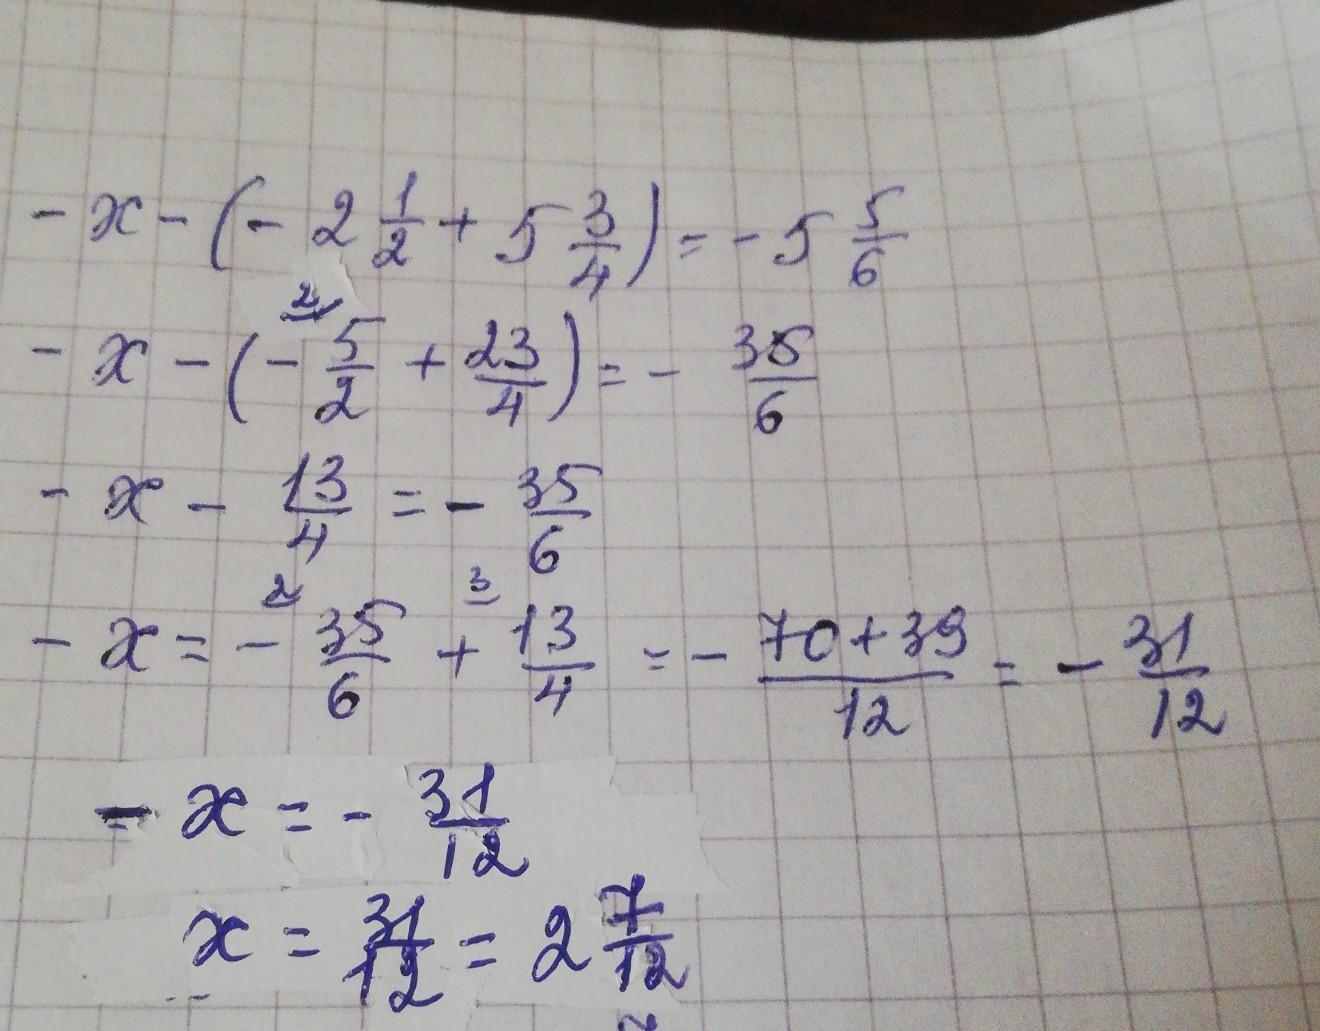 - x - (- 2 1/2 + 5 3/4) = - 5 5/6
- x - (- 5/2 + 23/4) = - 35/6
2
- x - 13/4 = - 35/6
2 3
- x = - 35/6 + 13/4 = - 70+39/12 = - 31/12
- x = - 31/12
x = 31/12 = 2 7/12